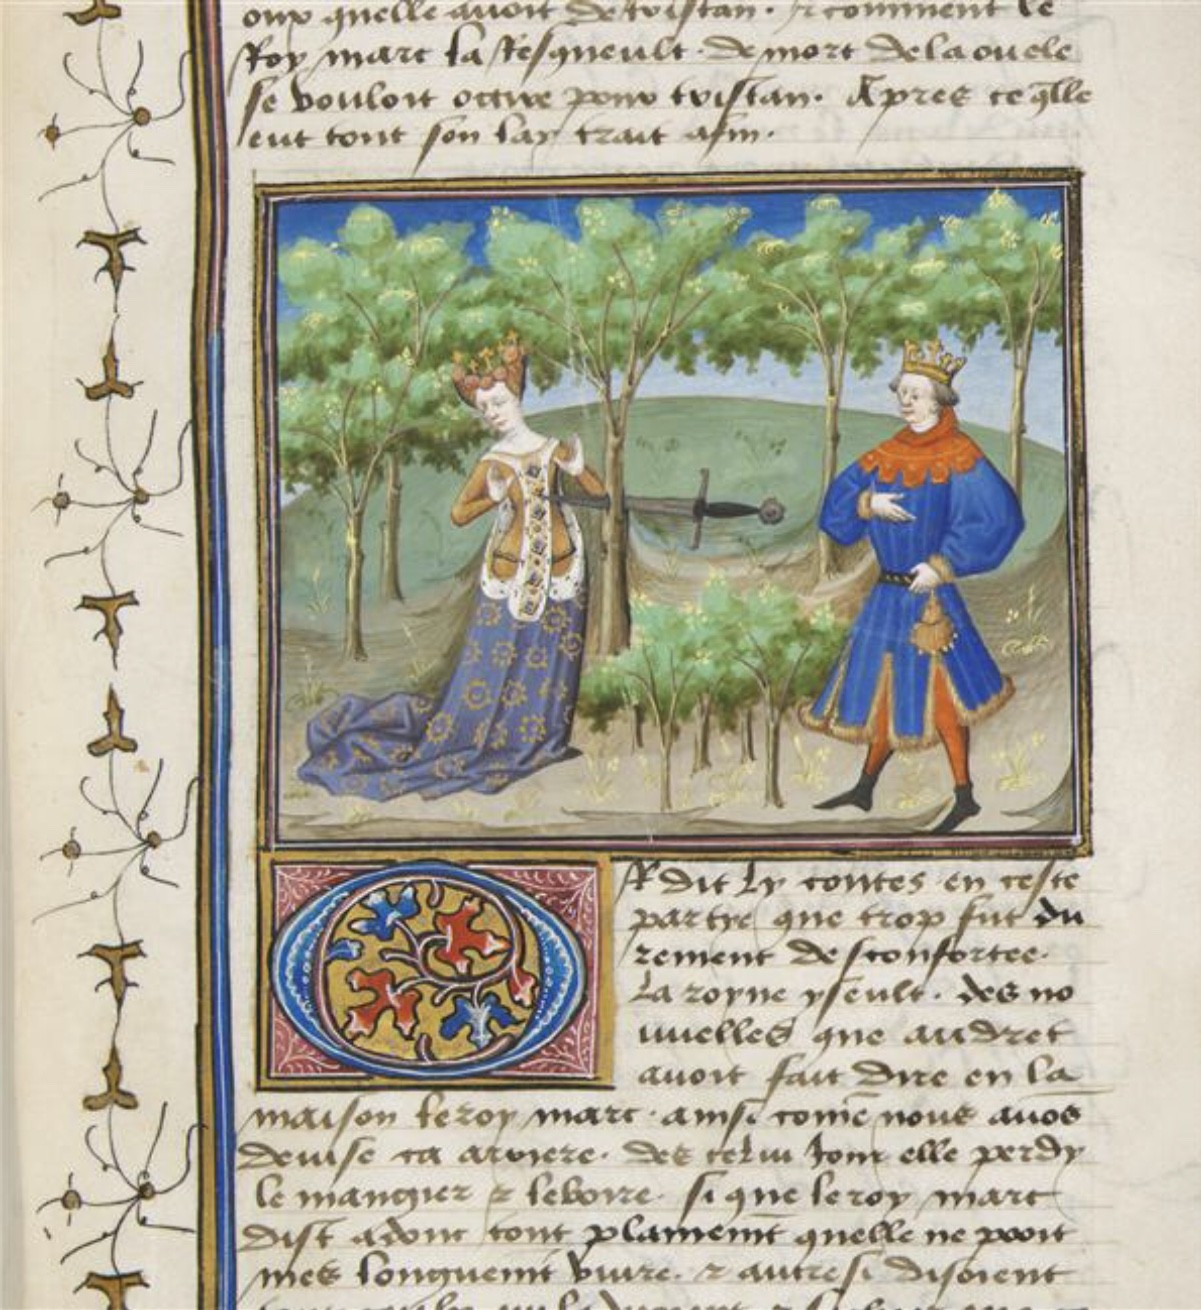 quelle avoit de tristan. ⁊ comment le
Roy marc la resqueult. de mort de la ou ele
se vouloit occire pour tristan. Apres ce q̄lle
eut tout son lay trait a fin.
Or dit ly contes en ceste
partye que trop fut du
rement desconfortee.
La royne yseult. des no
uuelles que audret
auoit fait dire en la
maison le roy marc. ainsi com̄e nous auōs
deuise ca arriere. des celui Jour elle perdy
le mangier ⁊ le boire. si que le roy marc
dist adont tout plainem̄t quelle ne pooit
mes longuem̄t viure. ⁊ autresi disoient